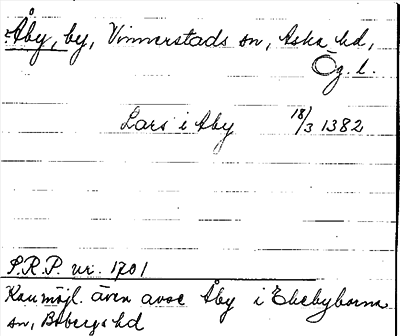 Åby, by, Vinnerstads sn, Aska hd,
Ög. l.
Lars i Aby 18/3 1382
S.R.P. nr. 1701
Kan möjl. även avse Åby i Ekebyborna
sn, Bobergs hd